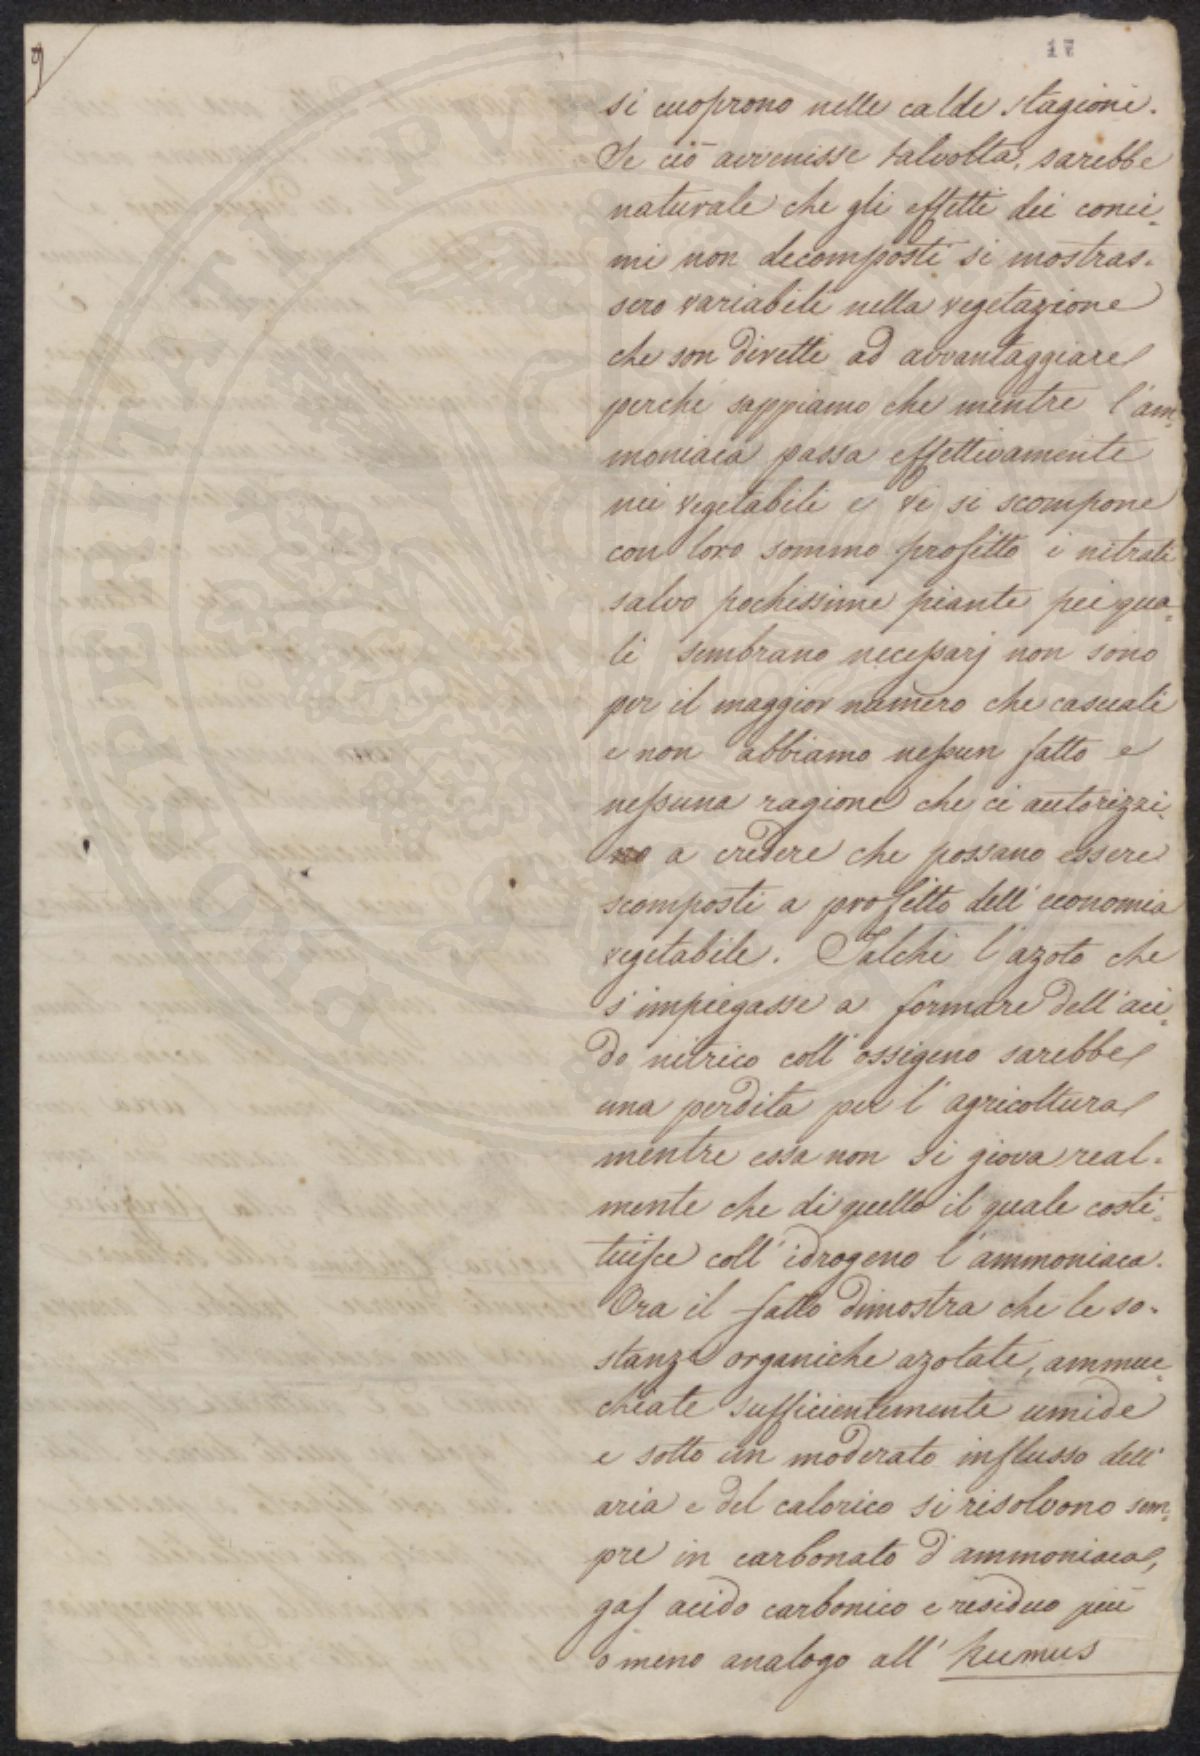 9
17
si cuoprono nelle calde stagioni.
Se ciò avvenisse talvolta, sarebbe
naturale che gli effetti dei conci-
mi non decomposti si mostras-
sero variabili nella vegetazione
che son diretti ad avvantaggiare
perché sappiamo che mentre l'am-
moniaca passa effettivamente
nei vegetabili e vi si scompone
con loro sommo profitto i nitrati
salvo pochissime piante pei qua-
li sembrano necessarj non sono
per il maggior numero che casuali
e non abbiamo nessun fatto e
nessuna ragione che ci autorizzi-
no a credere che possano essere
scomposti a profitto dell'economia
vegetabile. Talchè l'azoto che
s'impiegasse a formare dell'aci-
do nitrico coll'ossigeno sarebbe
una perdita per l'agricoltura
mentre essa non si giova real-
mente che di quello il quale costi-
tuisce coll'idrogeno l'ammoniaca.
Ora il fatto dimostra che le so-
stanze organiche azotate, ammuc-
chiate sufficientemente umide
e sotto un moderato influsso dell'
aria e del calorico si risolvono sem-
pre in carbonato d'ammoniaca,
gas acido carbonico e residuo più
o meno analogo all'humus